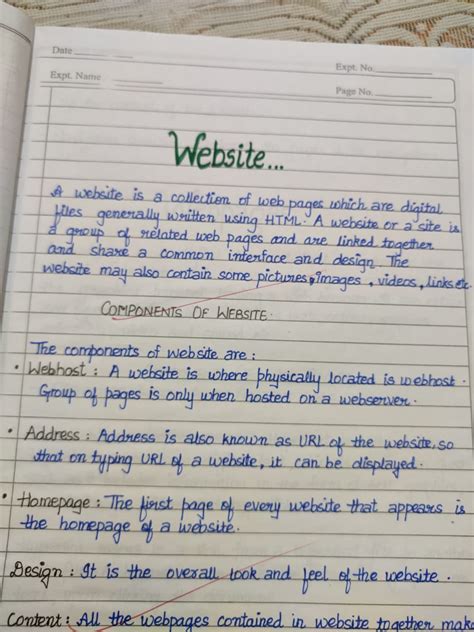 Date
Expt. No.
Expt. Name
Page No.
Website...
A website is a collection of web pages which are digital
files generally written using HTML. A website or a site is
a group of related web pages and are linked together
and share a common interface and design. The
website may also contain some pictures, images, videos, links etc.
COMPONENTS OF WEBSITE.
The components of website are :
• Webhost : A website is where physically located is webhost.
Group of pages is only when hosted on a webserver.
• Address : Address is also known as URL of the website, so
that on typing URL of a website, it can be displayed.
• Homepage : The first page of every website that appears is
the homepage of a website.
Design : It is the overall look and feel of the website.
Content : All the webpages contained in website together make